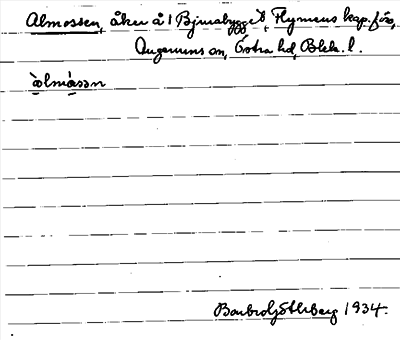 Almossen, åker å 1 Bjurabygget, Flymens kap. förs,
Augerums sn, Östra hd, Blek. l.
àlmásən
Barbro Göthberg 1934.